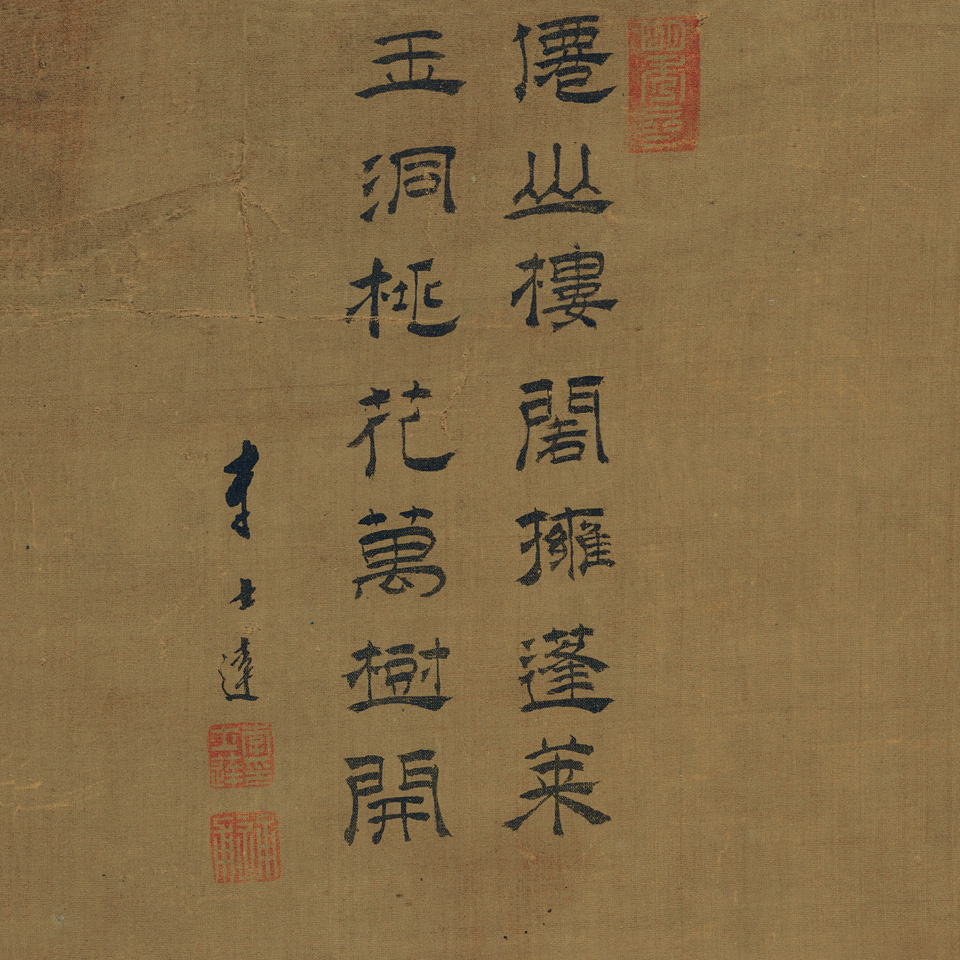 僊山樓閣擁蓬萊
玉洞桃花萬樹開
李士達